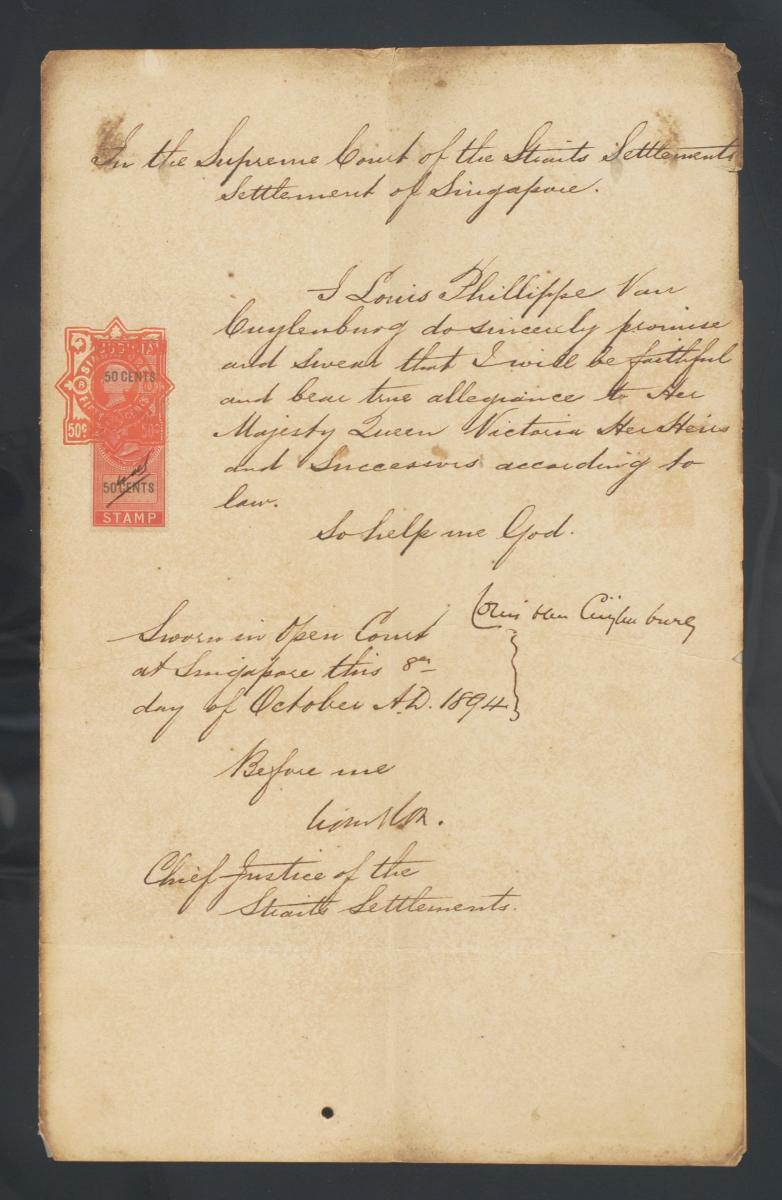 In the Supreme Court of the Straits Settlements
Settlement of Singapore.
I Louis Phillippe Van
Cuylenburg do sincerely promise
and swear that I will be faithful
and bear true allegiance to Her
Majesty Queen Victoria Her Heirs
and Successors according to
law.
So help me God.
JUDICIAL
50 CENTS
50c
50 CENTS
STAMP
Louis Van Cuylenburg
Sworn in Open Court
at Singapore this 8th
day of October A.D. 1894
Before me
Chief Justice of the
Straits Settlements.